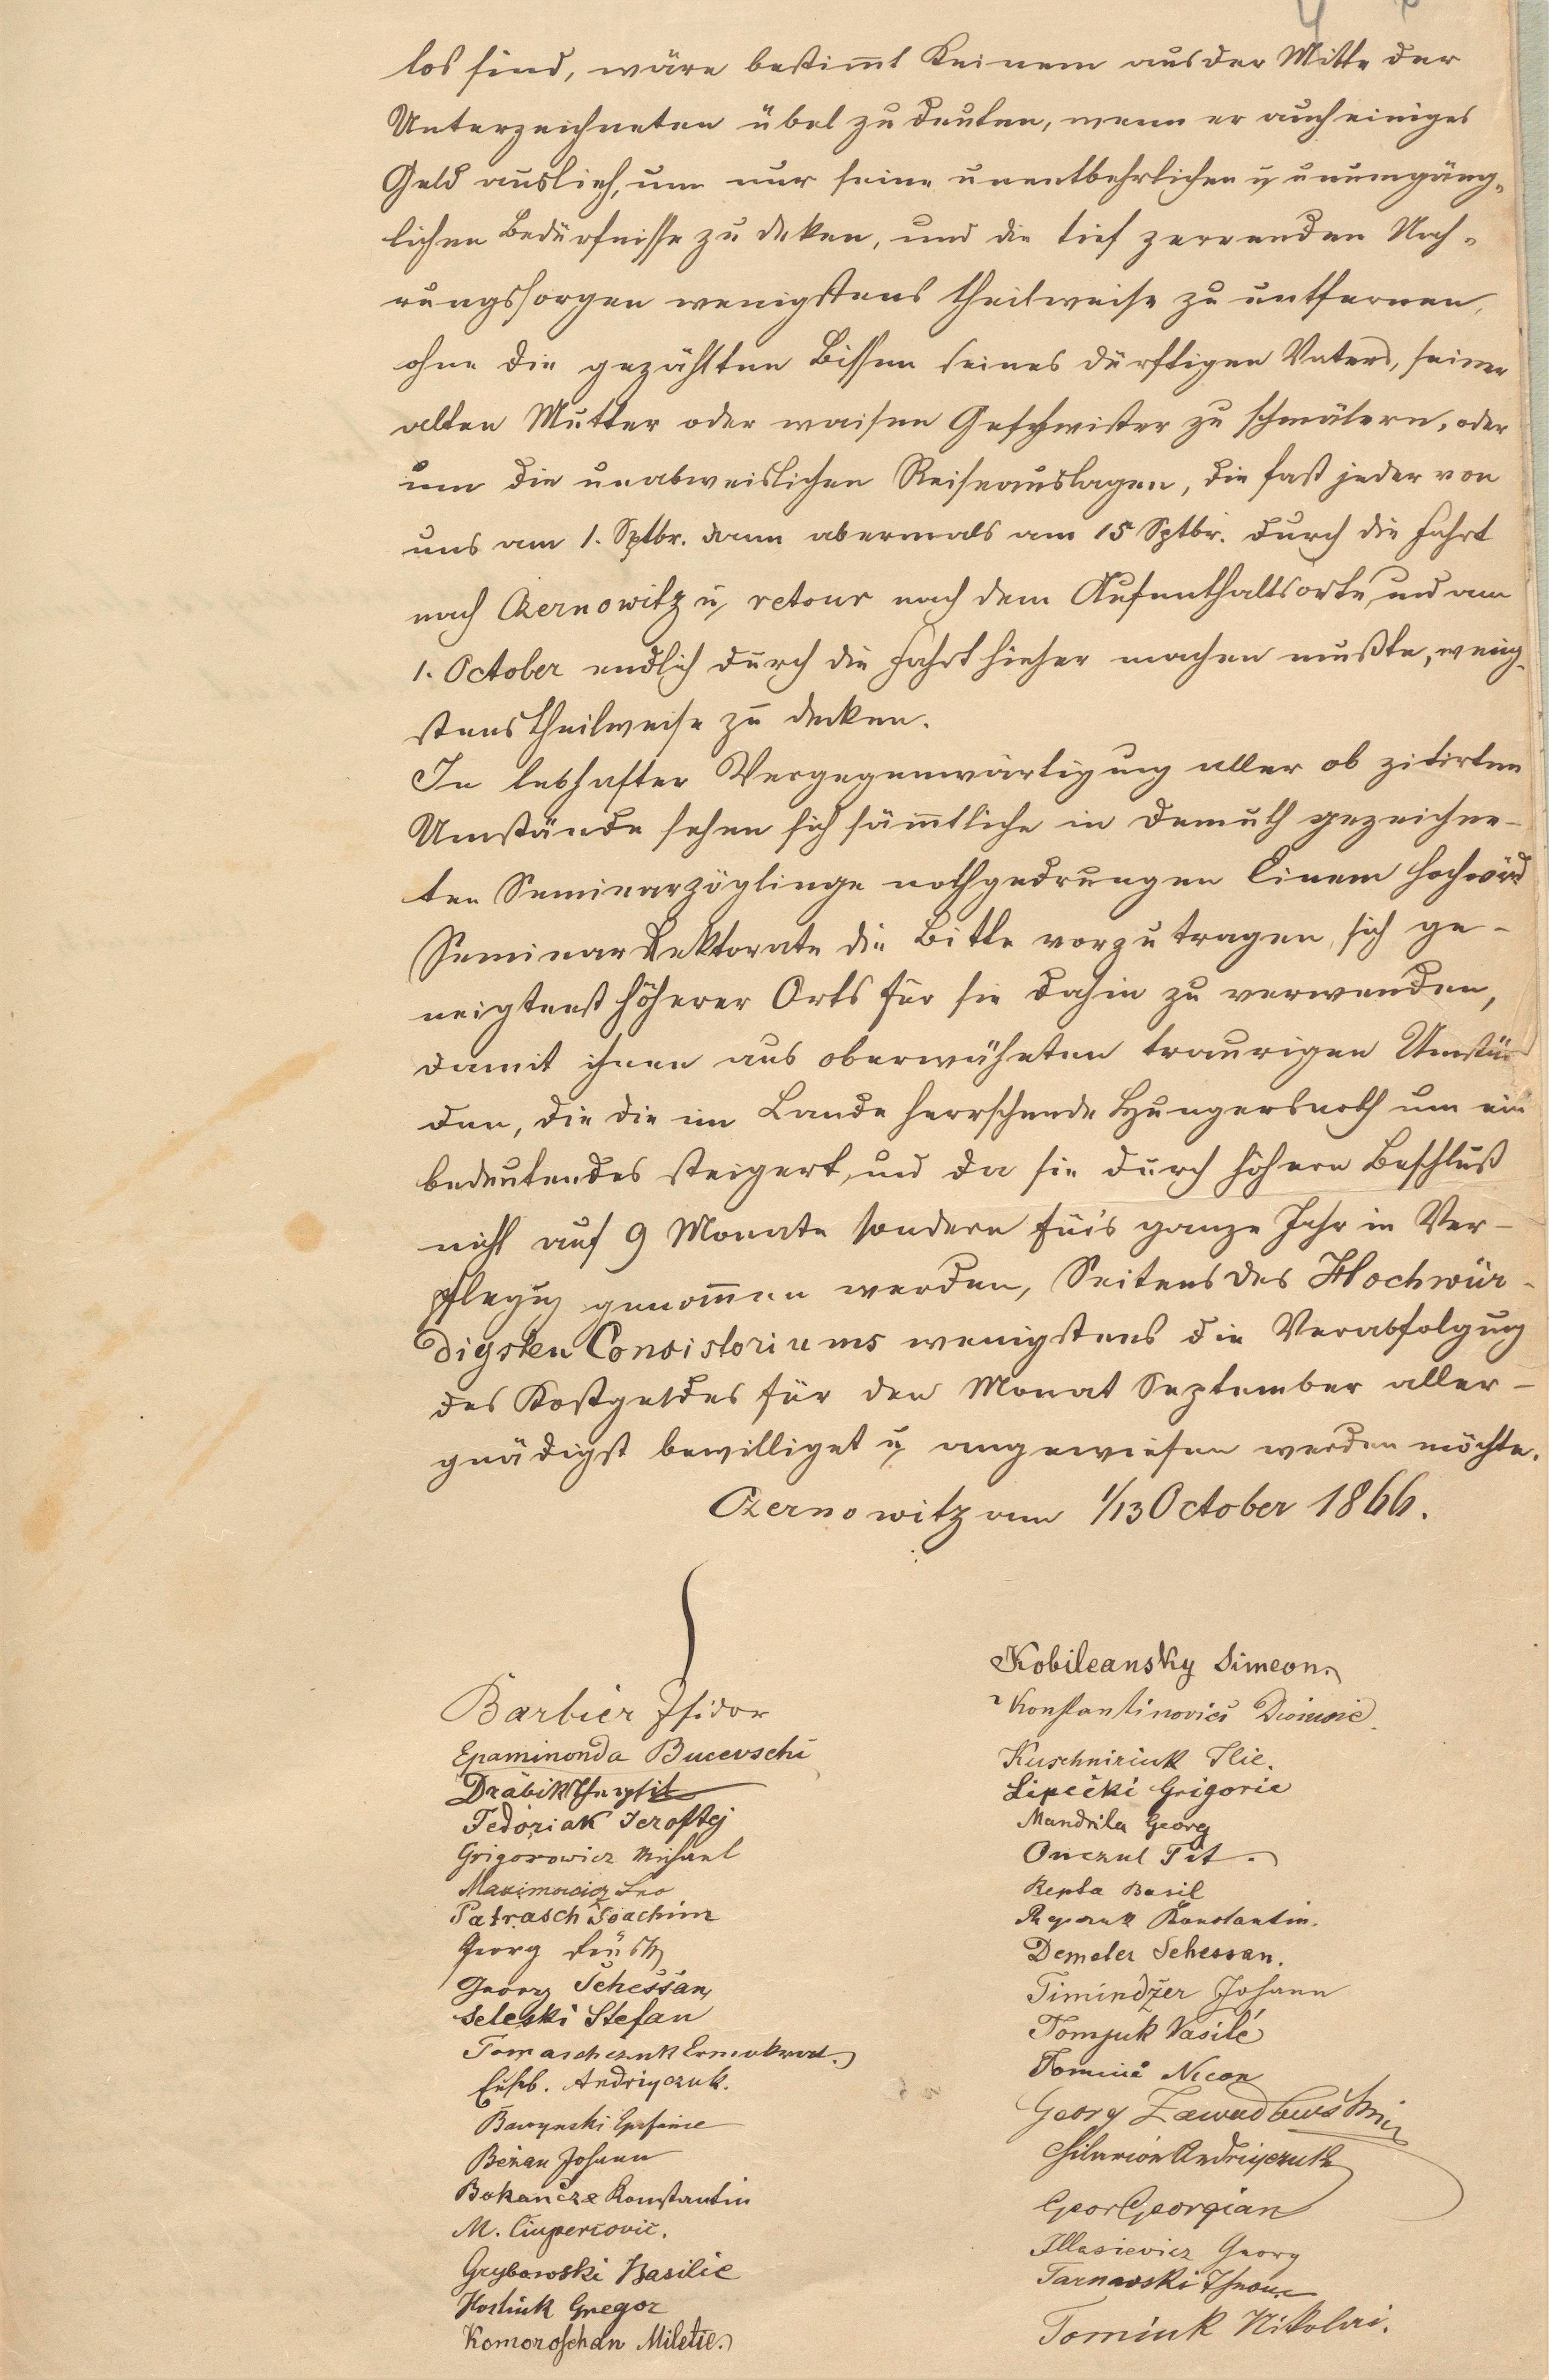 los sind, wäre bestim̄t Keinem aus der Mitte der
Unterzeichneten übel zu deuten, wenn er auch einiges
Geld auslieh, um nur seine unentbehrlichen u unumgäng-
lichen Bedürfnisse zu deken, und die tief zerrenden Nah-
rungssorgen wenigstens theilweise zu entfernen,
ohne die gezählten Bissen seines dürftigen Vaters, seiner
alten Mutter oder waisen Geschwister zu schmälern, oder
um die unabweislichen Reiseauslagen, die fast jeder von
uns am 1. Sptbr. dann abermals am 15 Sptbr. durch die Fahrt
nach Czernowitz u retour nach dem Aufenthaltsorte, und am
1. October endlich durch die Fahrt hieher machen mußte, wenig-
stens theilweise zu decken.
In lebhafter Vergegenwärtigung aller ob zitirten
Umstände sehen sich säm̄tliche in Demuth gezeichne-
ten Seminarzöglinge nothgedrungen Einem Hochwürd
Seminar Rektorate die Bitte vorzutragen, sich ge-
neigtenst höherer Orts für sie dahin zu verwenden,
damit ihnen aus oberwähnten traurigen Umstän
den, die die im Lande herrschende Hungersnoth um ein
bedeutendes steigert, und da sie durch höhern Beschluß
nicht auf 9 Monate sondern für's ganze Jahr in Ver-
pflegug genom̄en werden, Seitens des Hochwür-
digsten Consistoriums wenigstens die Verabfolgung
des Kostgeldes für den Monat September aller-
gnädigst bewilliget u angewiesen werden möchte.
Czernowitz am 1/13 October 1866.
Barbier Isidor
Epaminonda Bucevschi
Drabik
Fedoriak Jeroftej
Grigorowicz Michael
Maximowicz Leo
Patrasch Joachim
Georg
Georg Schessan
Seleski Stefan
Tomaschczuk
Euseb. Andriyczuk.
Bawynski
Bežan Johann
Bokancze Konstantin
M. Ciupercovič.
Grybowski Basilie
Hostiuk Gregor
Komoroschan Miletie.
Kobileansky Simeon.
Konstantinovici Dionisie.
Kuschniriuk Ilie.
Lipečki Grigorie
Mandrila Georg
Onczul Tit.
Repta Basil
Konstantin.
Demeter Schessan.
Timindžer Johann
Tomjuk Vasile
Nicon
Georg
Hilarion Andriyczuk
Geor Georgian
Illasievicz Georg
Tarnavski
Tomiuk Nikolai.